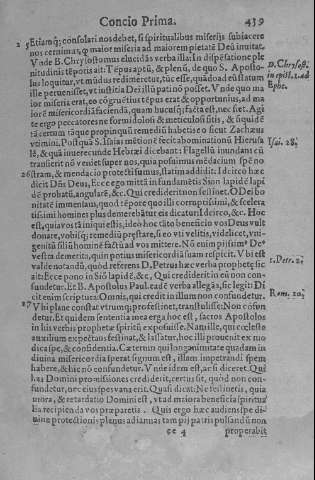 Concio Prima. 439
25 Etiamq; consolari nos debet, si spiritualibus miserijs subiacere
nos cernimus, q maior miseria ad maiorem pietatē Deū inuitat.
Vnde B. Chrysostomus elucidās verba illa: In dispēsatione ple
nitudinis tēporis ait: Tēpus aptū, & plenū, de quo S. Aposto-
lus loquitur, vt mūdus redimeretur,
ille perueniisset, vt iustitia Dei illū pati nō posset. Vnde quo ma
ior miseria erat, eo cognoscitur tēpus erat & opportunius, ad ma
iorē misericordiā faciendā, quam hucusq; facta est, nec fiet. Agite
te ergo peccatores ne formidolosi & meticulosi sitis, & siquidē
tā certum tāque propinquū remediū habetis eo sicut Zachæus
vtimini. Postquā S. Isaias mētionē fecit abominationū Hierusa
lē, & quā inuerecunde Hebræi dicebant: Flagellū inundans cū
transierit nō veniet super nos, quia posuimus mēdacium spē no
26 stram, & mendacio protecti sumus, statim addidit. Idcirco hæc
dicit Dñs Deus, Ecce ego mittā in fundamētis Sion lapidē lapi
dē probatū, angularē, &c. Qui crediderit non festinet. O Dei bo
nitatē immensam, quod tēpore quo illi corruptissimi, & scelera
tissimi homines plus demerebātur eis dicatur: Idcirco, &c. Hoc
est, quia vos tā iniqui estis, ideo hoc tāto beneficio vos Deus vult
donare, vobisq; remediū præstare, si eo vti velitis, videlicet, vni-
genitū filiū hominē factū ad vos mittere. Nō enim pijssimꝰ De
vestra demerita, quin potius misericordiā suam respicit. Vbi est
valde notandū, quod referens D. Petrus hæc verba prophetę sic
ait: Ecce pono in Siō lapidē, &c. Qui crediderit in eū non con-
fundetur. Et B. Apostolus Paul. eadē verba allegās, sic legit: Di
cit enim scriptura: Omnis, qui credit in illum non confundetur.
27 Vbi plane constat vtrumq; profestinet, transtulisse: Non cōfun
detur. Et quidem sententia mea ergo hoc est, sacros Apostolos
in his verbis prophetæ spiritū exposuisse. Nam ille, qui cœleste
auxilium expectans festinat, & lassatur, hoc illi prouenit ex mo
dica spe, & confidentia. Cæterum qui longanimitate quadam in
diuina misericordia sperat signum est, illam impetrandi spem
habere, & hic nō confundetur. Vnde idem est, ac si diceret. Qui
hæc Domini promissiones crediderit, certus sit, quòd non con-
fundetur, nec eius spes vana erit. Quasi dicat: Ne festineris, quia
mora, & retardatio Domini est, vt ad maiora beneficia spiritua
lia recipienda vos præparetis. Quis ergo hæc audiens spe di-
uinæ protectionis plenus ad innatam pij patris pulsandū non
ee 4 properabit
D. Chrysost.
in epist. 1. ad
Ephe.
Isai. 28.
1. Petr. 2.
Rom. 10.